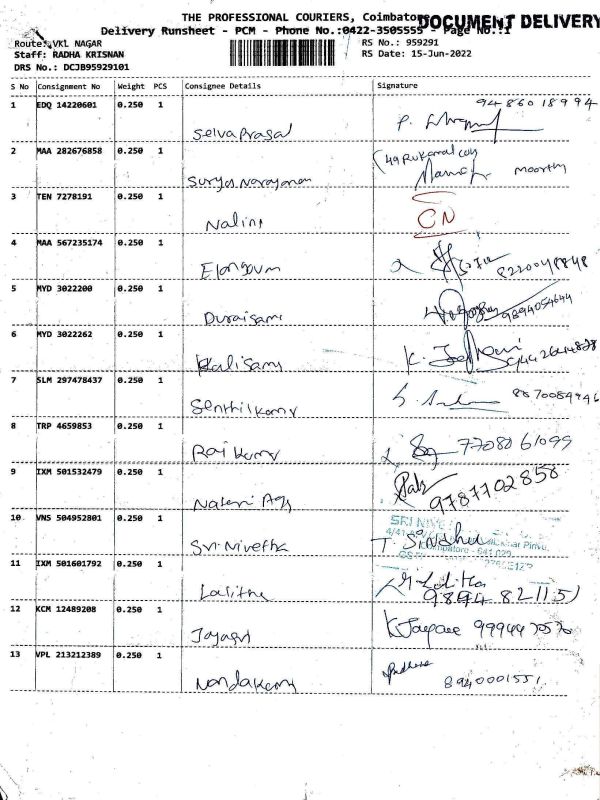 THE PROFESSIONAL COURIERS, Coimbatore
DOCUMENT DELIVERY
Delivery Runsheet - PCM - Phone No.:0422-3505555 - Page No.:1
Route: VKL NAGAR
RS No.: 959291
Staff: RADHA KRISNAN
RS Date: 15-Jun-2022
DRS No.: DCJB95929101
S No Consignment No Weight PCS Consignee Details Signature
1 EDQ 14220601 0.250 1 Selvaprasal 9486018994
P.
2 MAA 282676858 0.250 1 Suryanarayanan 49 Rukamal moorthy
3 TEN 7278191 0.250 1 Nalini CN
4 MAA 567235174 0.250 1 Elangovm 8220048848
5 MYD 3022200 0.250 1 Duraisami 9894054644
6 MYD 3022262 0.250 1 Kalisamy K.
7 SLM 297478437 0.250 1 Senthilkumr S. 8870084946
8 TRP 4659853 0.250 1 Rajkumr 7708861099
9 IXM 501532479 0.250 1 9787702858
10 VNS 504952801 0.250 1 Sri.Nivetha T. Sindhu
SRI NIVE
11 IXM 501601792 0.250 1 Lalitha 9894821151
12 KCM 12489208 0.250 1 Jayasri K
13 VPL 213212389 0.250 1 Nandakumr 8940001551